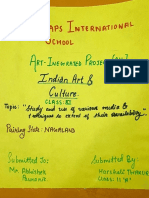 APS INTERNATIONAL
SCHOOL
ART-INTEGRATED PROJECT
Indian Art &
Culture
CLASS:
Topic: "Study and use of various media &
techniques to extent of their availability"
Pairing State: NAGALAND
Submitted To:
Mr. Abhishek
Submitted By
Harshall
Class: 11